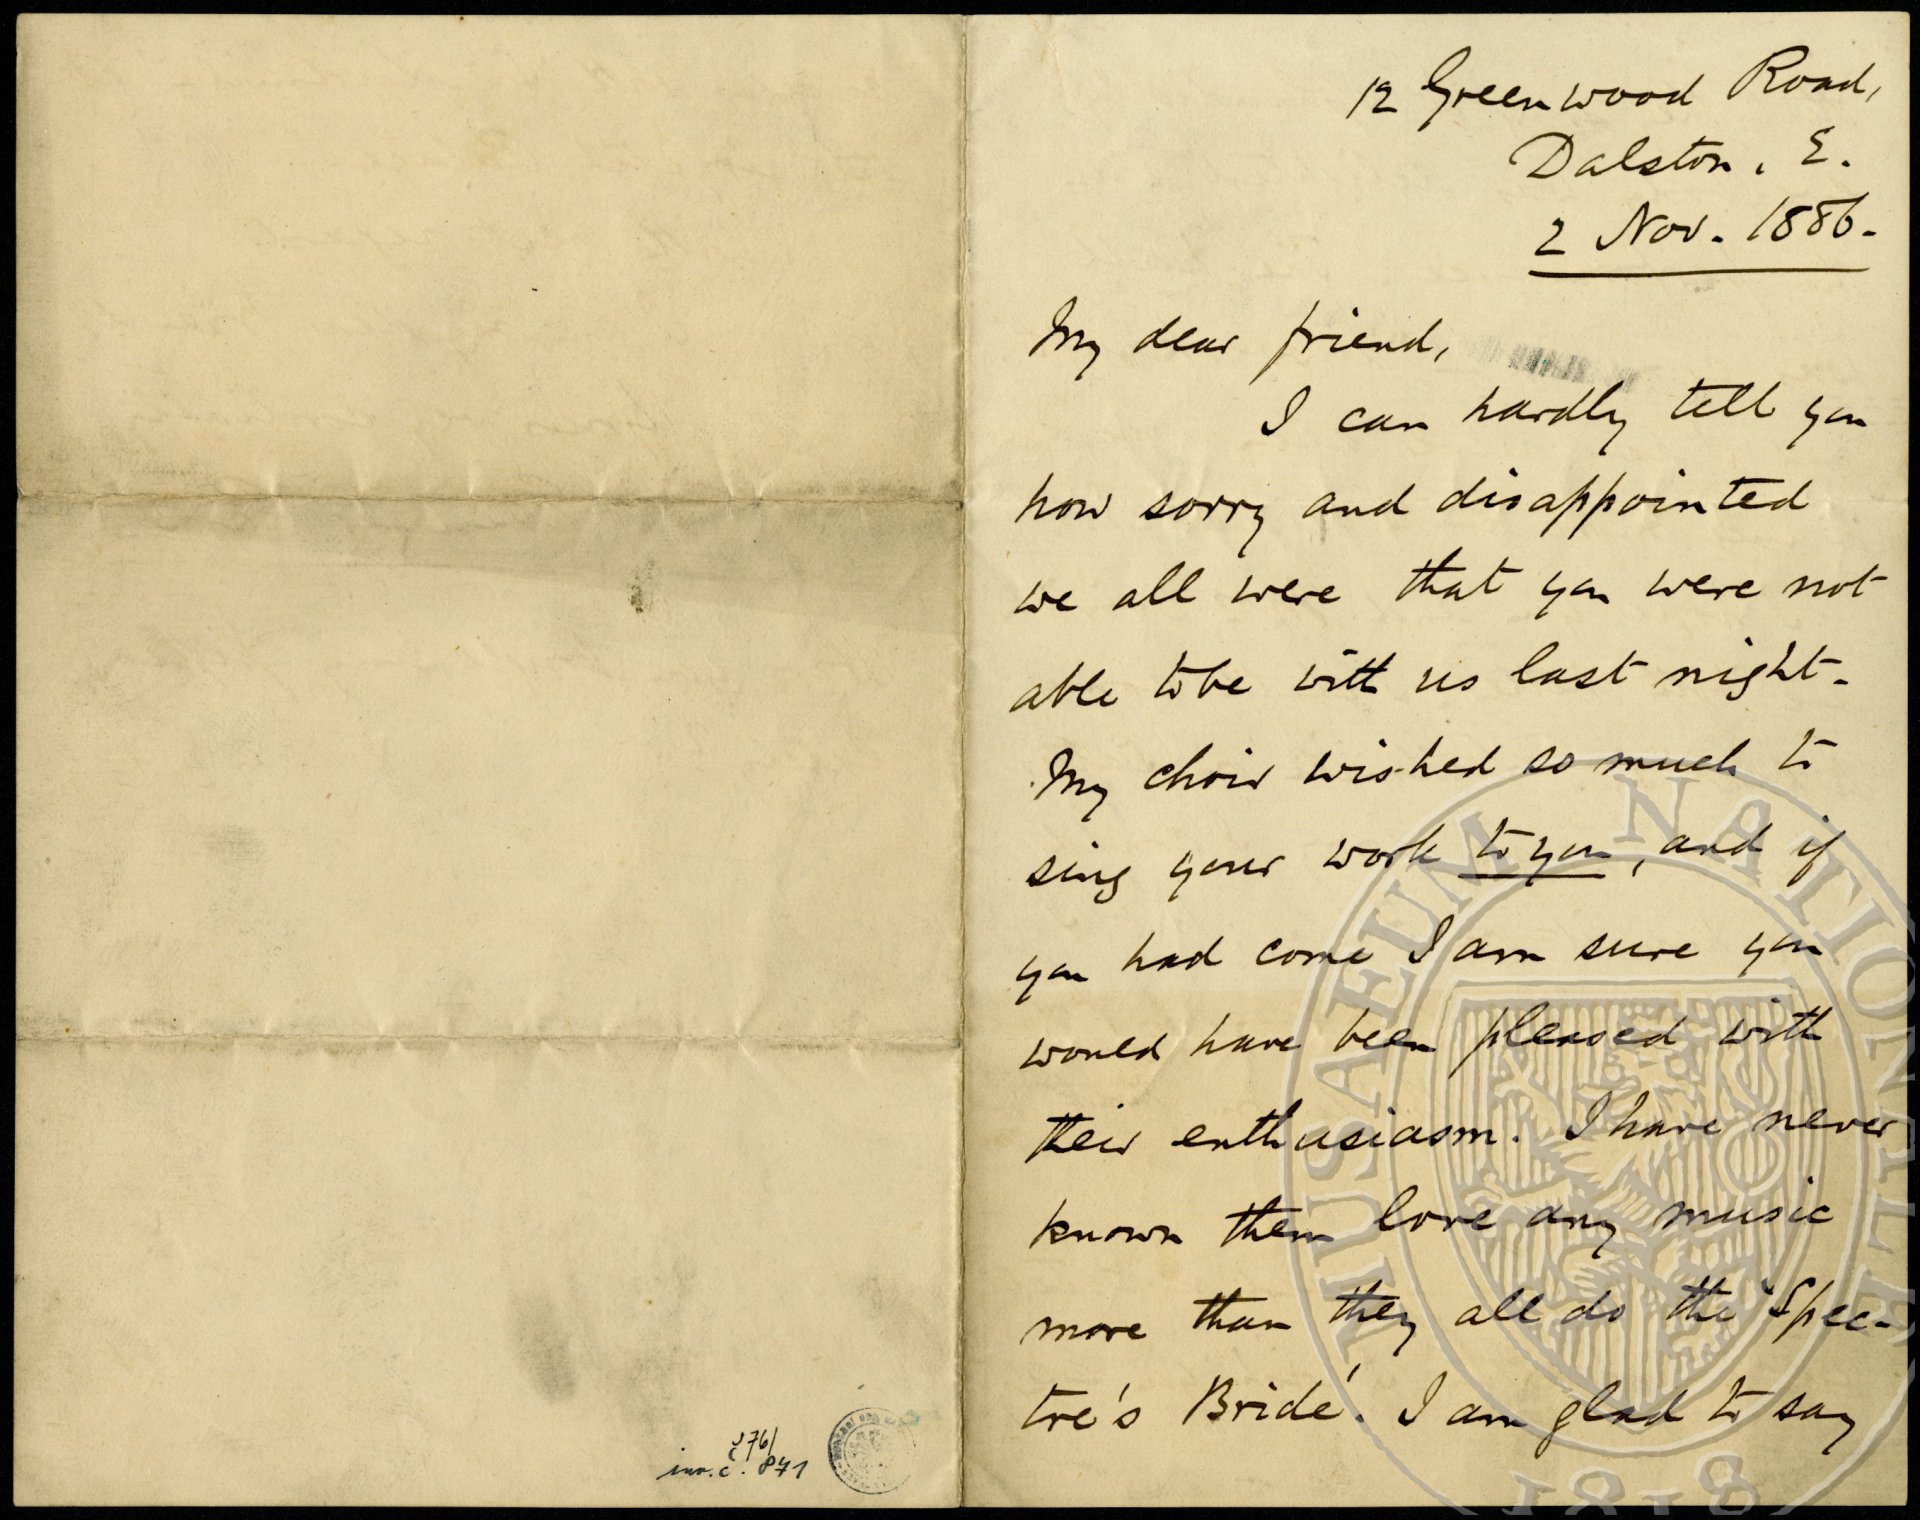 12 Greenwood Road,
Dalston, E.
2 Nov. 1886.
My dear friend,
I can hardly tell you
how sorry and disappointed
we all were that you were not
able to be with us last night.
My choir wished so much to
sing your work to you, and if
you had come I am sure you
would have been pleased with
their enthusiasm. I have never
known them love any music
more than they all do the 'Spec-
tre's Bride'. I am glad to say
inv. č. 871
MUSAEUM NATIONALE
1818